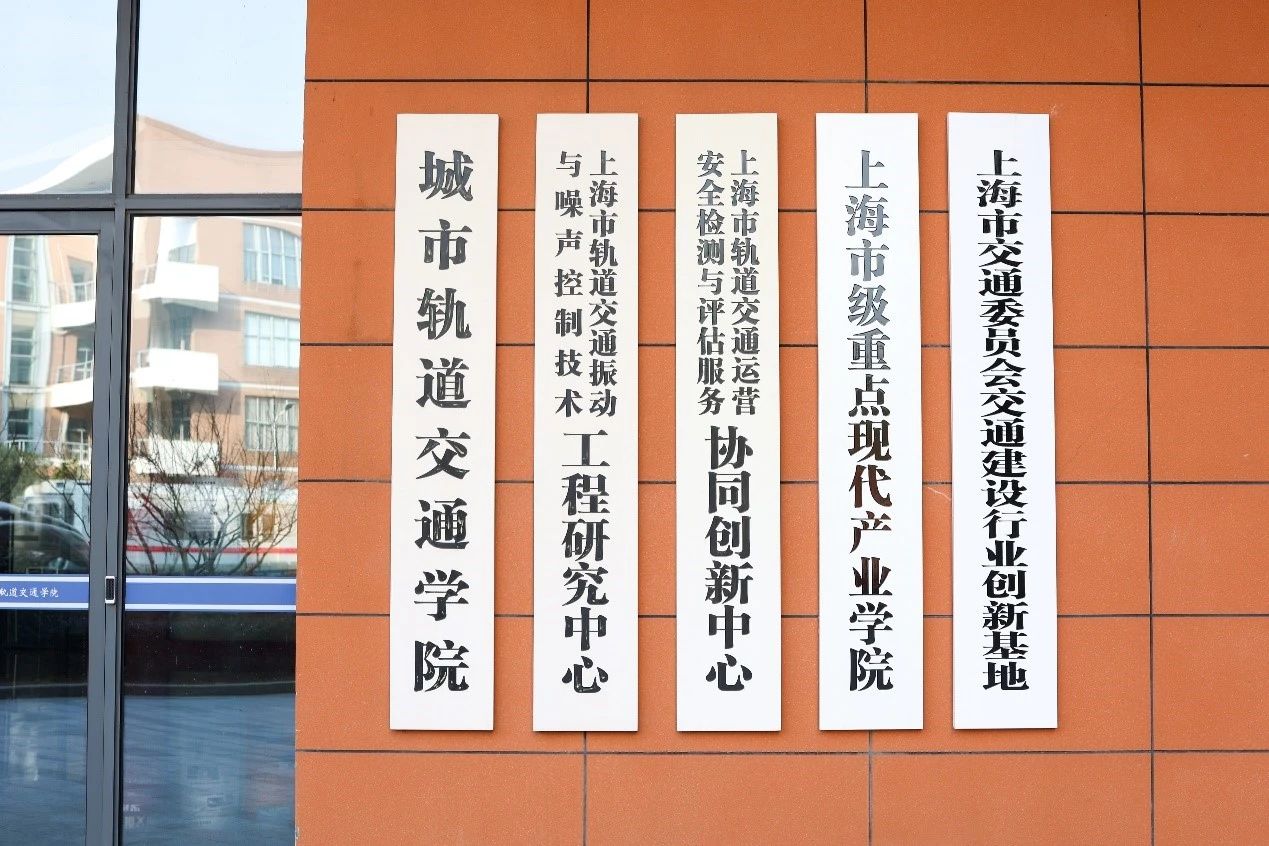 城市轨道交通学院
上海市轨道交通振动
与噪声控制技术
工程研究中心
上海市轨道交通运营
安全检测与评估服务
协同创新中心
上海市级重点现代产业学院
上海市交通委员会交通建设行业创新基地
轨道交通学院